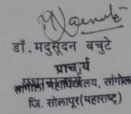 डॉ. मधुसूदन बचुटे
प्राचार्य
सांगोला महाविद्यालय, सांगोला
जि. सोलापूर(महाराष्ट्र)